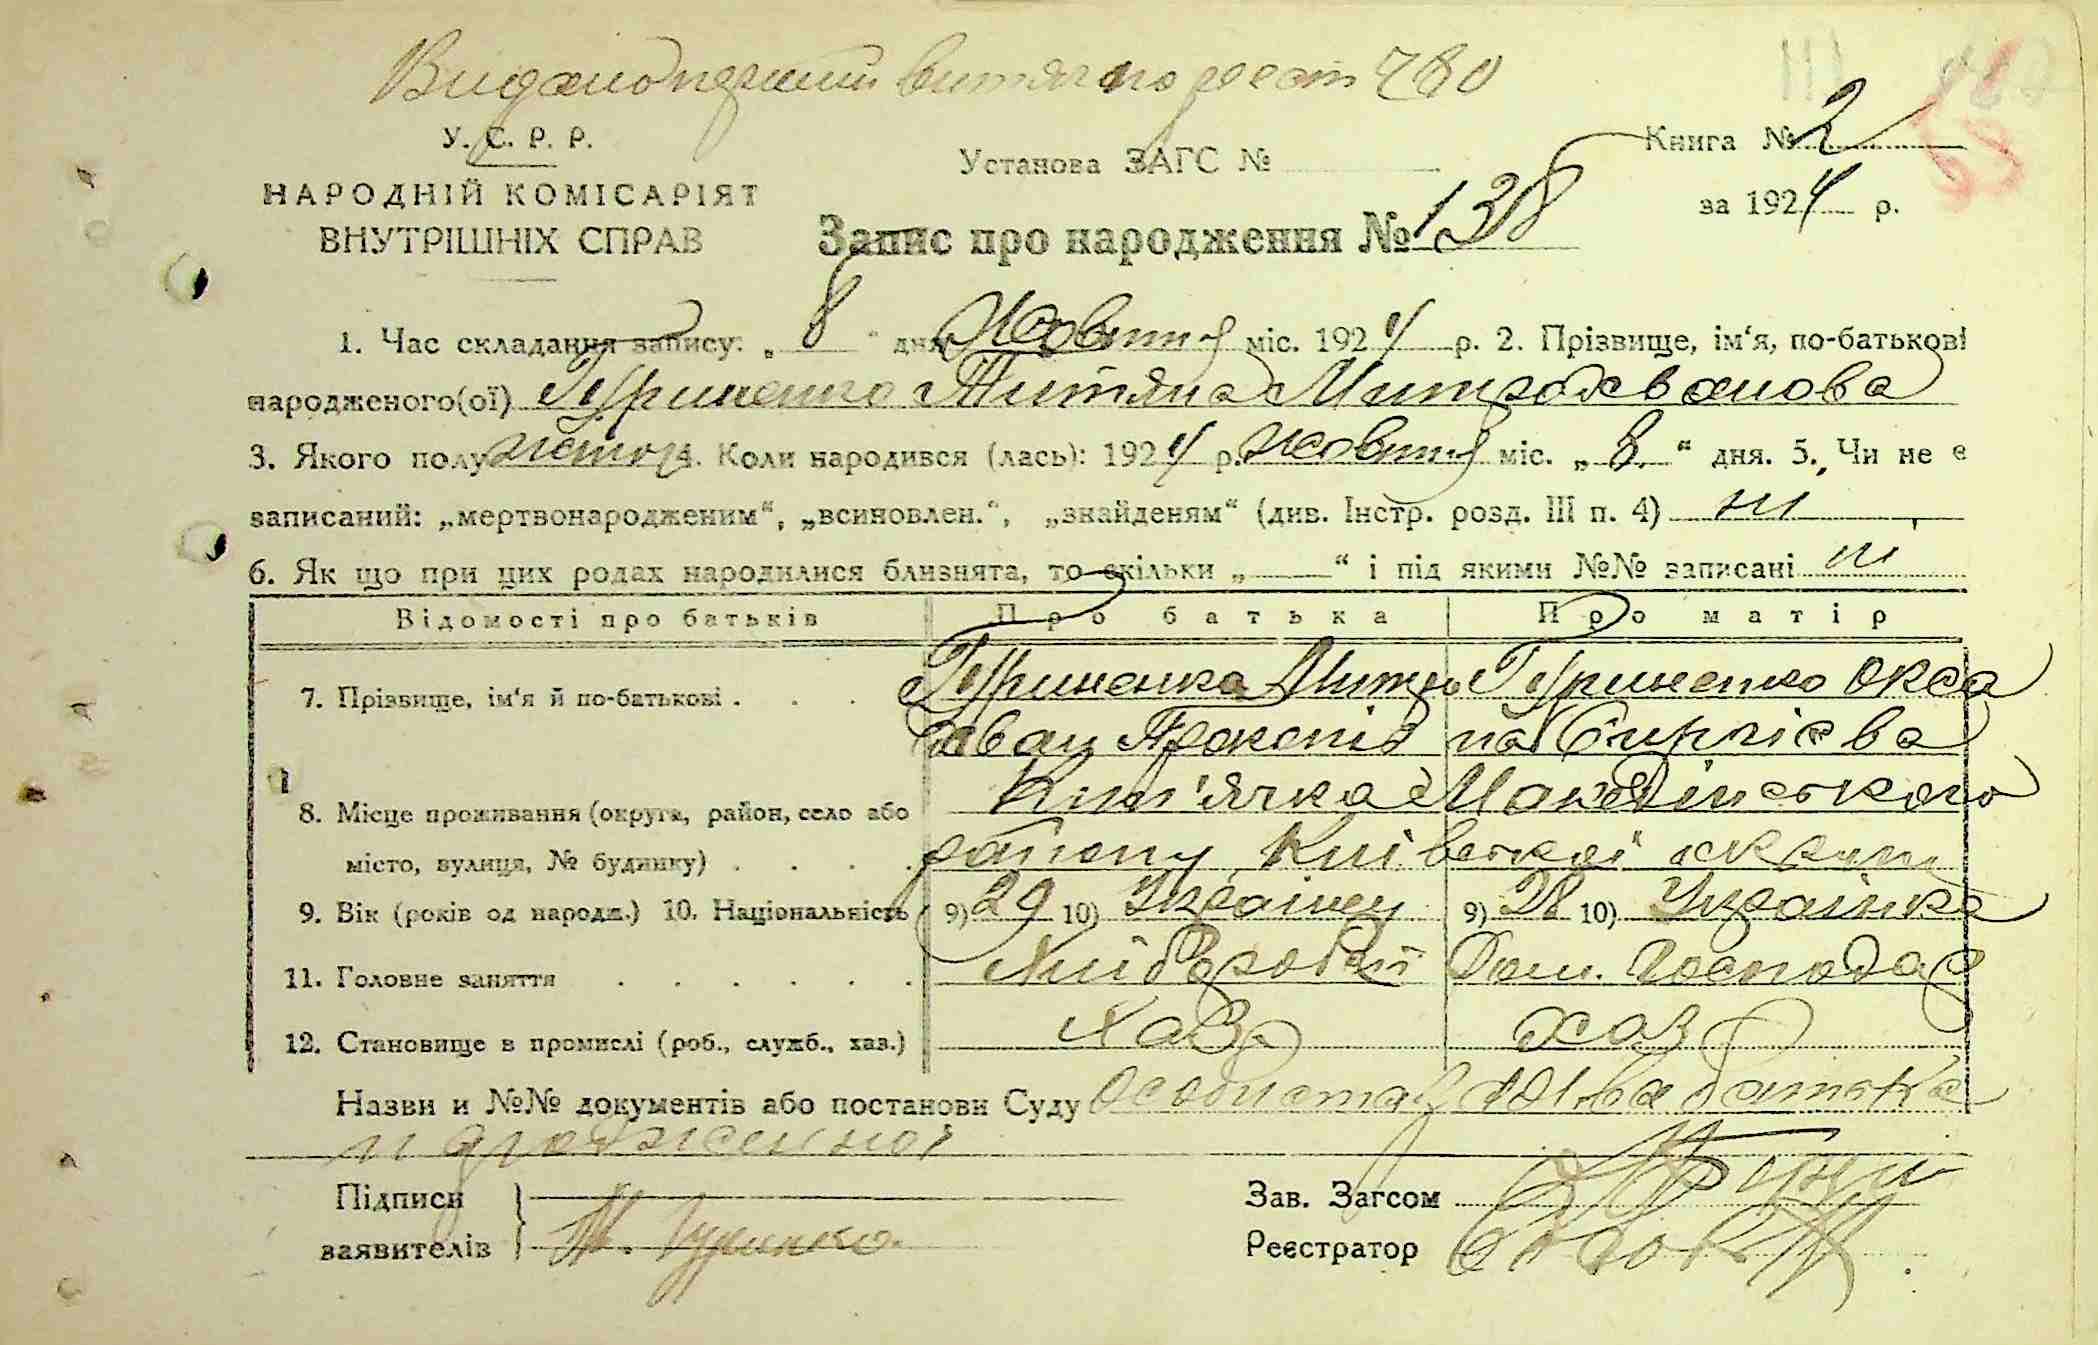 Видано первий витяг по реест 780
У. С. Р. Р.
НАРОДНІЙ КОМІСАРІЯТ
ВНУТРІШНІХ СПРАВ
Установа ЗАГС №
Книга № 2
за 1924 р.
Запис про народження № 138
1. Час складання запису: „ 8 “ дня Жовтня міс. 1924 р. 2. Прізвище, ім‘я, по-батькові
народженого(ої) Гуриненко Титяна Митрохванова
3. Якого полу жіноч. Коли народився (лась): 1924 р. жовтня міс. „ 3 “ дня. 5. Чи не є
записаний: „мертвонародженим“, „всиновлен.“, „знайденям“ (див. Інстр. розд. III п. 4) ні
6. Як що при цих родах народилися близнята, то скільки „ “ і під якими №№ записані ні
Відомості про батьків Про батька Про матір
7. Прізвище, ім‘я й по-батькові . . . Гуриненка Митро Гуриненко Окса
хван Прокопів на Сиргієва
8. Місце проживання (округа, район, село або Макарівського
місто, вулиця, № будинку) . . . . району Київської округи
9. Вік (років од народж.) 10. Національність 9) 29 10) Українец 9) 28 10) Українка
11. Головне заняття . . . . . . Хлібороб Дом. Господар
12. Становище в промислі (роб., служб., хаз.) Хаз хаз
Назви и №№ документів або постанови Суду Особиста заява батька
народженної
Підписи
заявителів } М. Гуринко
Зав. Загсом
Реєстратор